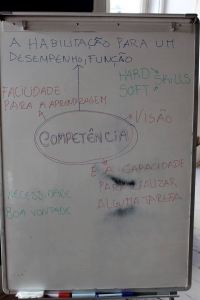 A HABILITAÇÃO PARA UM
DESEMPENHO, FUNÇÃO
HARD
SKILLS
SOFT
FACILIDADE
PARA A APRENDIZAGEM
VISÃO
COMPETÊNCIA
É A CAPACIDADE
PARA REALIZAR
ALGUMA TAREFA
NECESSIDADE
BOA VONTADE